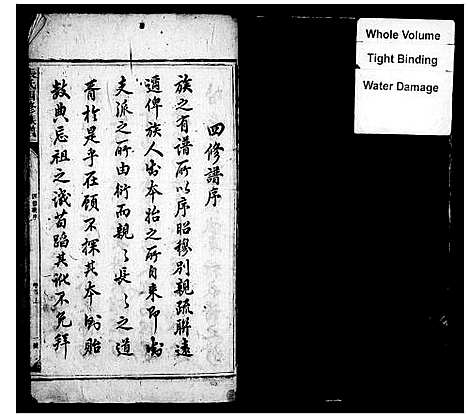 四修譜序
族之有譜所以序昭穆別親疏聯遠
邇俾族人知本始之所自来即知
支派之所由衍而親〻長〻之道
胥於是乎在顧不探其本則貽
数典忘祖之譏苟蹈其訛不免拜
Whole Volume
Tight Binding
Water Damage